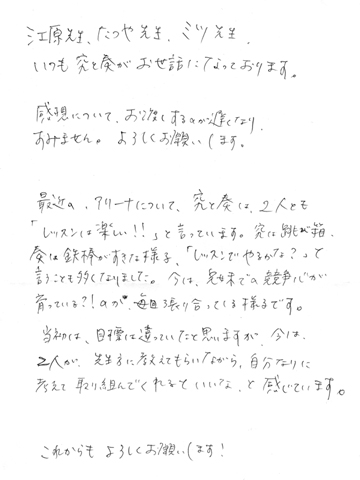 江原先生、たつや先生、ミツ先生
いつも究と奏がお世話になっております。
感想について、お渡しするのが遅くなり、
すみません。よろしくお願いします。
最近の、アリーナについて、究と奏は、2人とも
「レッスンは楽しい!!」と言っています。究は跳び箱、
奏は鉄棒がすきな様子、「レッスンでやるかな?」と
言うことも多くなりました。今は、兄妹での競争心が
育っている?!のか、毎日張り合っている様子です。
当初は、目標は違っていたと思いますが、今は、
2人が、先生方に考えてもらいながら、自分なりに
考えて取り組んでくれるといいな、と感じています。
これからもよろしくお願いします!